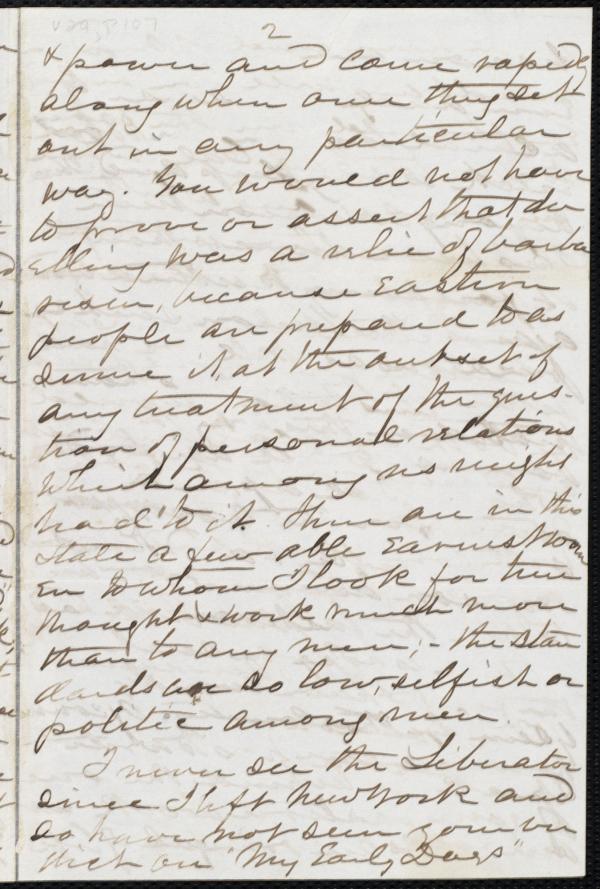 2
& power and come rapidly
along when once they set
out in any particular
way. You would not have
to prove or assert that du
elling was a relic of barba
rism, because Eastern
people are prepared to as
sume it, at the outset of
any treatment of the ques-
tion of personal relations
which among us might
lead to it. There are in this
state a few able Earnest wom
en to whom I look for true
thought & work much more
than to any men; - the stan
dards are so low, selfish or
politic among men.
I never see the Liberator
since I left New York and
so have not seen your ver
dict on "My Early Days"